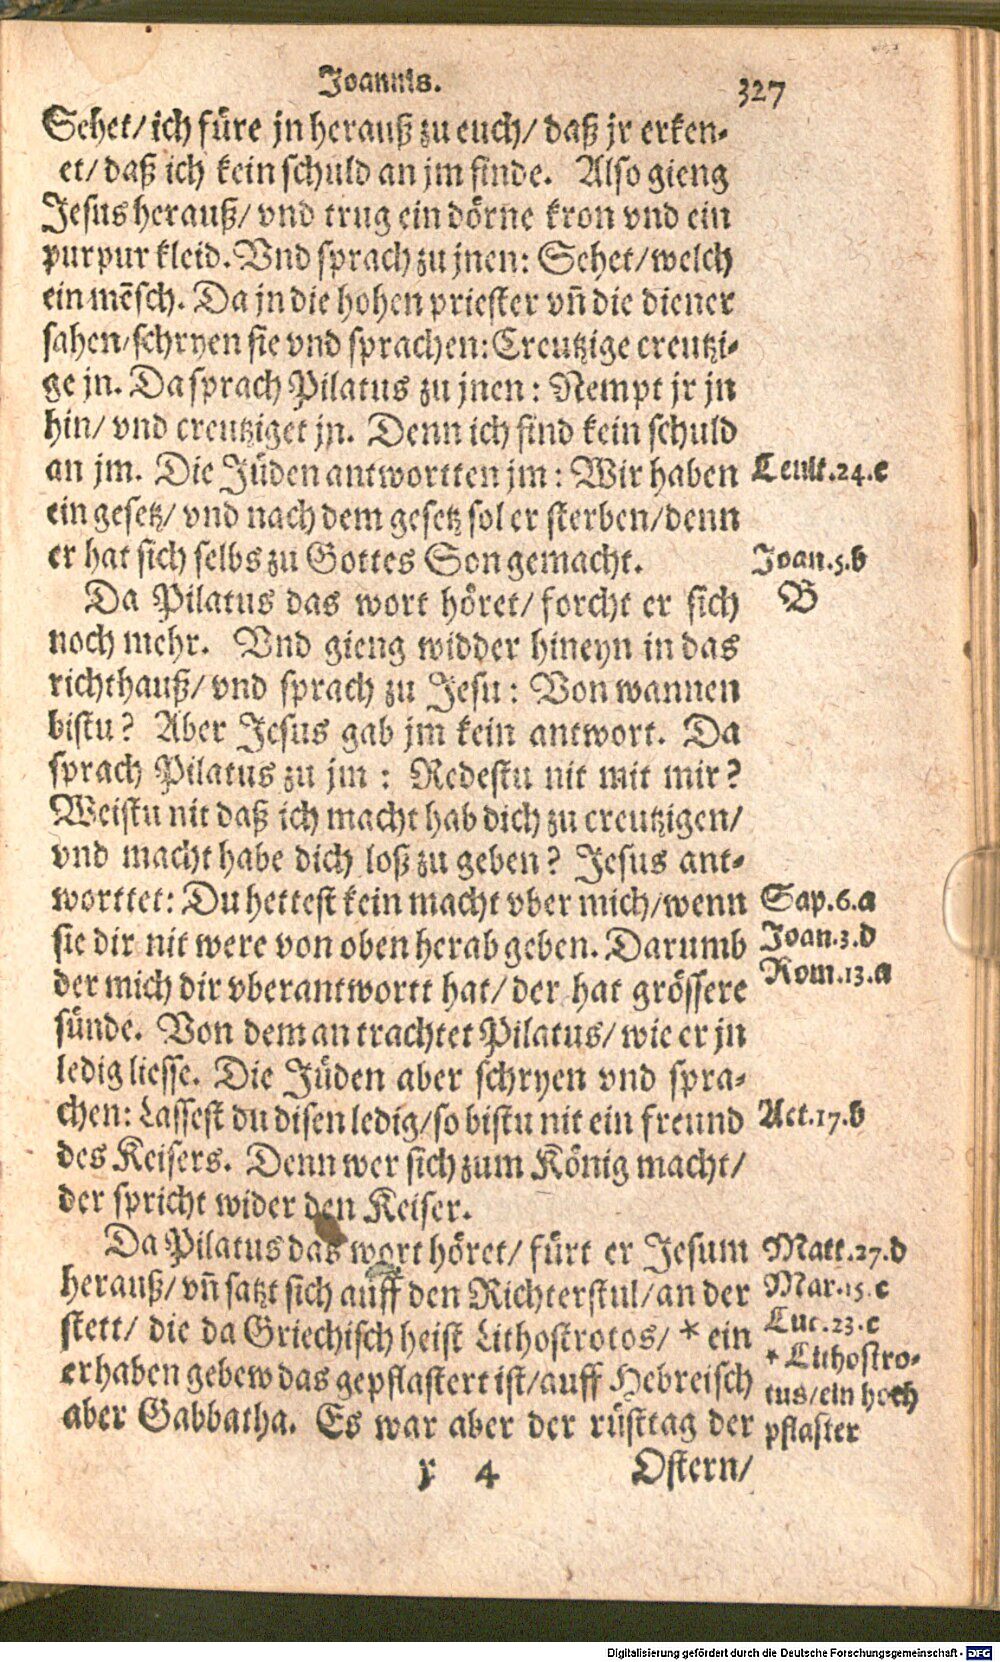 Joannis. 327
Sehet/ ich füre jn herauß zu euch/ daß jr erken-
et/ daß ich kein schuld an jm finde. Also gieng
Jesus herauß/ vnd trug ein dörne kron vnd ein
purpur kleid. Vnd sprach zu jnen: Sehet/ welch
ein mēsch. Da jn die hohen priester vñ die diener
sahen/ schryen sie vnd sprachen: Creutzige creutzi-
ge jn. Da sprach Pilatus zu jnen: Nempt jr jn
hin/ vnd creutziget jn. Denn ich find kein schuld
an jm. Die Jüden antwortten jm: Wir haben
Leuit.24.c
ein gesetz/ vnd nach dem gesetz sol er sterben/ denn
er hat sich selbs zu Gottes Son gemacht.
Joan.5.b
Da Pilatus das wort höret/ forcht er sich
B
noch mehr. Vnd gieng widder hineyn in das
richthauß/ vnd sprach zu Jesu: Von wannen
bistu? Aber Jesus gab jm kein antwort. Da
sprach Pilatus zu jm: Redestu nit mit mir?
Weistu nit daß ich macht hab dich zu creutzigen/
vnd macht habe dich loß zu geben? Jesus ant-
worttet: Du hettest kein macht vber mich/ wenn
Sap.6.a
sie dir nit were von oben herab geben. Darumb
Joan.3.d
der mich dir vberantwortt hat/ der hat grössere
Rom.13.a
sünde. Von dem an trachtet Pilatus/ wie er jn
ledig liesse. Die Jüden aber schryen vnd spra-
chen: Lassest du disen ledig/ so bistu nit ein freund
Act.17.b
des Keisers. Denn wer sich zum König macht/
der spricht wider den Keiser.
Da Pilatus das wort höret/ fürt er Jesum
Matt.27.d
herauß/ vñ satzt sich auff den Richterstul/ an der
Mar.15.c
stett/ die da Griechisch heist Lithostrotos/ * ein
Luc.23.c
erhaben gebew das gepflastert ist/ auff Hebreisch
* Lithostro-
tus/ ein hoch
aber Gabbatha. Es war aber der rüsttag der
pflaster
y 4 Ostern/
Digitalisierung gefördert durch die Deutsche Forschungsgemeinschaft - DFG